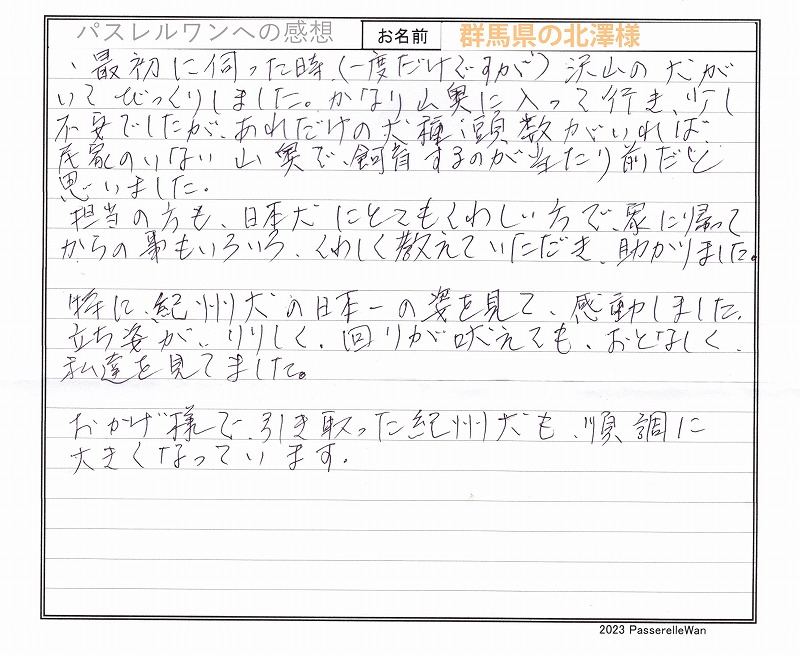 パスレルワンへの感想 お名前 群馬県の北澤様
、最初に伺った時、(一度だけですが) 沢山の犬が
いてびっくりしました。かなり山奥に入って行き、少し
不安でしたが、あれだけの犬種、頭数がいれば、
民家のいない山奥で、飼育するのが当たり前だと
思いました。
担当の方も、日本犬にとてもくわしい方で、家に帰って
からの事もいろいろ、くわしく教えていただき、助かりました。
特に、紀州犬の日本一の姿を見て、感動しました、
立ち姿が、りりしく、回りが吠えても、おとなしく、
私達を見てました。
おかげ様で、引き取った紀州犬も、順調に
大きくなっています.
2023 PasserelleWan